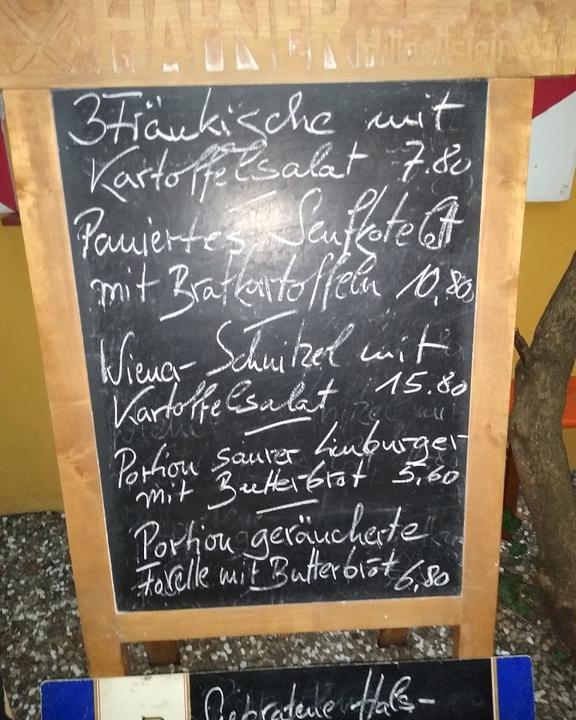 HAFNER
3 Fränkische mit
Kartoffelsalat 7.80
Paniertes Senfkotelett
mit Bratkartoffeln 10,80
Wiena-Schnitzel mit
Kartoffelsalat 15.80
Portion saurer Limburger
mit Butterbrot 5,60
Portion geräucherte
Forelle mit Butterbrot 6,80
Gebratene Hals-